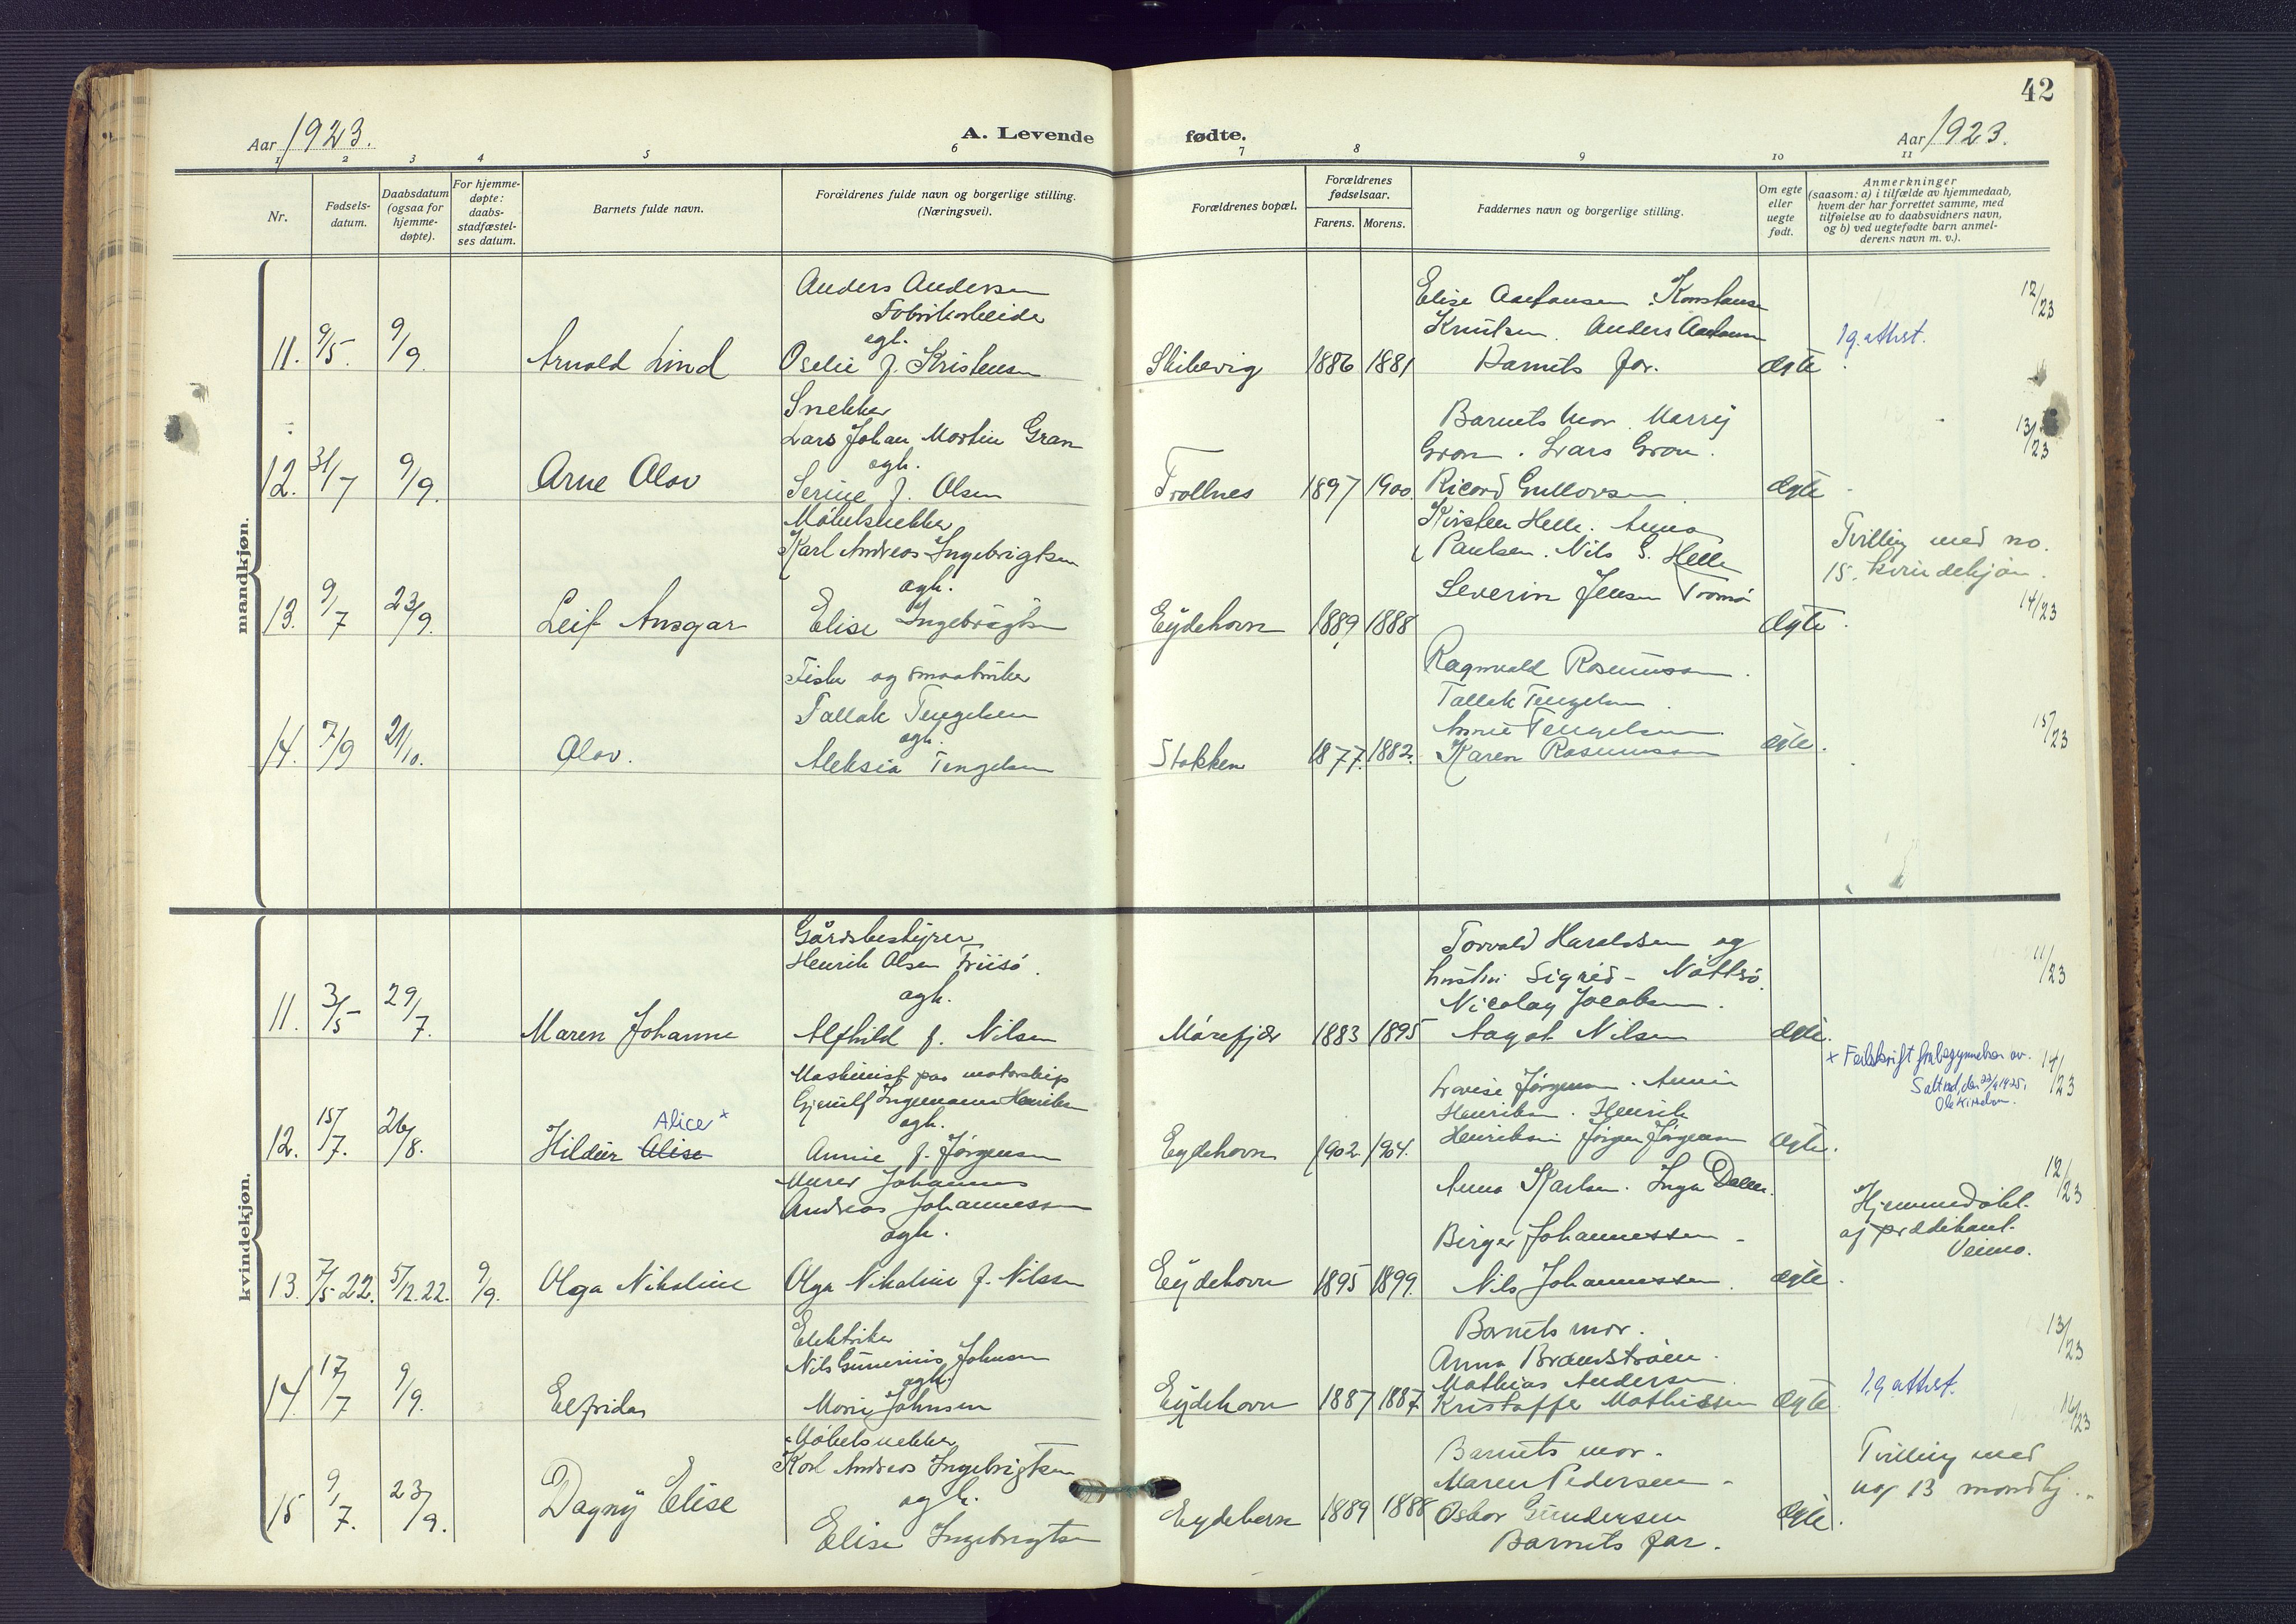 42
Aar 1923.
A. Levende fødte.
Aar 1923.
1 2 3 4 5 6 7 8 9 10 11
Nr.
Fødsels-
datum.
Daabsdatum
(ogsaa for
hjemme-
døpte).
For hjemme-
døpte:
daabs-
stadfæstel-
ses datum.
Barnets fulde navn.
Forældrenes fulde navn og borgerlige stilling.
(Næringsvei).
Forældrenes bopæl.
Forældrenes
fødselsaar.
Farens. Morens.
Faddernes navn og borgerlige stilling.
Om egte
eller
uegte
født.
Anmerkninger
(saasom: a) i tilfælde av hjemmedaab,
hvem der har forrettet samme, med
tilføielse av to daabsvidners navn,
og b) ved uegtefødte barn anmel-
derens navn m. v.).
mandkjøn.
11. 9/5. 9/9. Arnold Lind
Anders Andersen
egt.
Oselie f. Kristensen
Skilevig 1886 1881
Elise Aartansen Konstanse
Knutsen. Anders
Barnets far.
Ægte
1g. attest.
12/23
12. 31/7 9/9. Arne Olav
Snekker
Lars Johan Martin Gran
ogh.
Serine f. Olsen
Trollnes 1897 1900.
Barnets mor. Marrij
Gron. Lars Gron.
Ricard Gullovsen
Ægte
13/23
13. 9/7 23/9. Leif Ansgar
Møbelsnekker
Karl Andreas Ingebrigtsen
ogh.
Elise Ingebrigtsen
Eydehavn 1889 1888
Kirsten Helle. Anna
Paulsen. Nils G. Helle
Severin Jensen Tromø
Ægte
Tvilling med no.
15. kvindekjøn.
14/23
14. 7/9 21/10. Olav.
Fisker og smaabruker
Tallak Tengelsen
ogh.
Aleksia Tengelsen
Stokken 1877. 1882.
Ragnvald Rasmussen.
Tallak Tengelsen.
Annie Tengelsen.
Karen Rasmussen
ægte.
15/23
kvindekjøn.
11. 3/5 29/7. Maren Johanne
Gårdsbestyrer
Henrik Olsen Friisø.
ogh.
Alfhild f. Nilsen
Mørefjær 1883 1895
Torvald Haraldsen og
hustru Sigrid - Nattsø.
Nicolay Jacobsen.
Aagot Nilsen
ægte.
11/23
12. 15/7. 26/8. Hildur Alise
Alice x
Maskinist paa motorskip
Ingemann Henriksen
ogh.
Annie f. Jørgensen
Eydehavn 1902. 1904.
Lovise Jørgensen. Annie
Henriksen. Henrik
Henriksen Jørgen Jørgensen
Ægte.
x Feilskrift
Saltrød, den 22/4 1925.
14/23
13. 7/5-22. 5/12.22. 9/9. Olga Nikoline
Murer Johannes
Andreas Johannessen
ogh.
Olga Nikoline f. Nilssen
Eydehavn 1895 1899.
Anna Karlsen. Inga Dalen.
Birger Johannessen -
Nils Johannessen.
ægte.
Hjemmedøbt
af prædikant
Veimo.
12/23
14. 17/7 9/9. Elfrida
Elektriker
Nils Gunerius Johnsen
ogh.
Marie Johnsen
Eydehavn 1887 1887.
Barnets mor.
Anna Brandstrøm.
Mathias Andersen.
Kristoffer Mathissen
Ægte
1g attest.
13/23
15 9/7. 23/9. Dagny Elise
Møbelsnekker
Karl Andreas Ingebrigtsen
ogh.
Elise Ingebrigtsen
Eydehavn 1889 1888
Barnets mor.
Maren Pedersen -
Oskar Gundersen
Barnets far.
Ægte.
Tvilling med
no 13 mandkj.
16/23